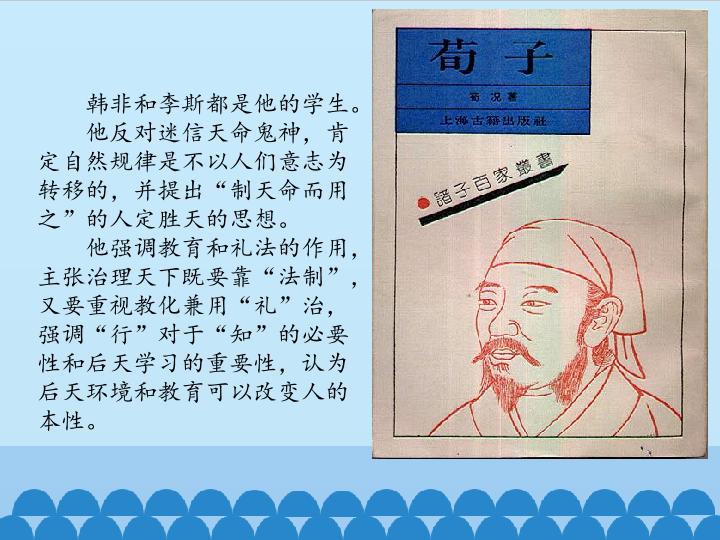 韩非和李斯都是他的学生。
他反对迷信天命鬼神，肯
定自然规律是不以人们意志为
转移的，并提出“制天命而用
之”的人定胜天的思想。
他强调教育和礼法的作用，
主张治理天下既要靠“法制”，
又要重视教化兼用“礼”治，
强调“行”对于“知”的必要
性和后天学习的重要性，认为
后天环境和教育可以改变人的
本性。
荀子
荀况著
上海古籍出版社
諸子百家叢書